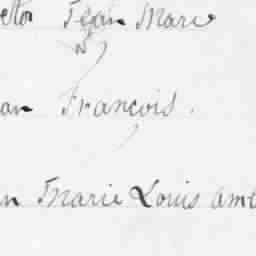 elton Jean Marie
an François.
n Marie Louis amb